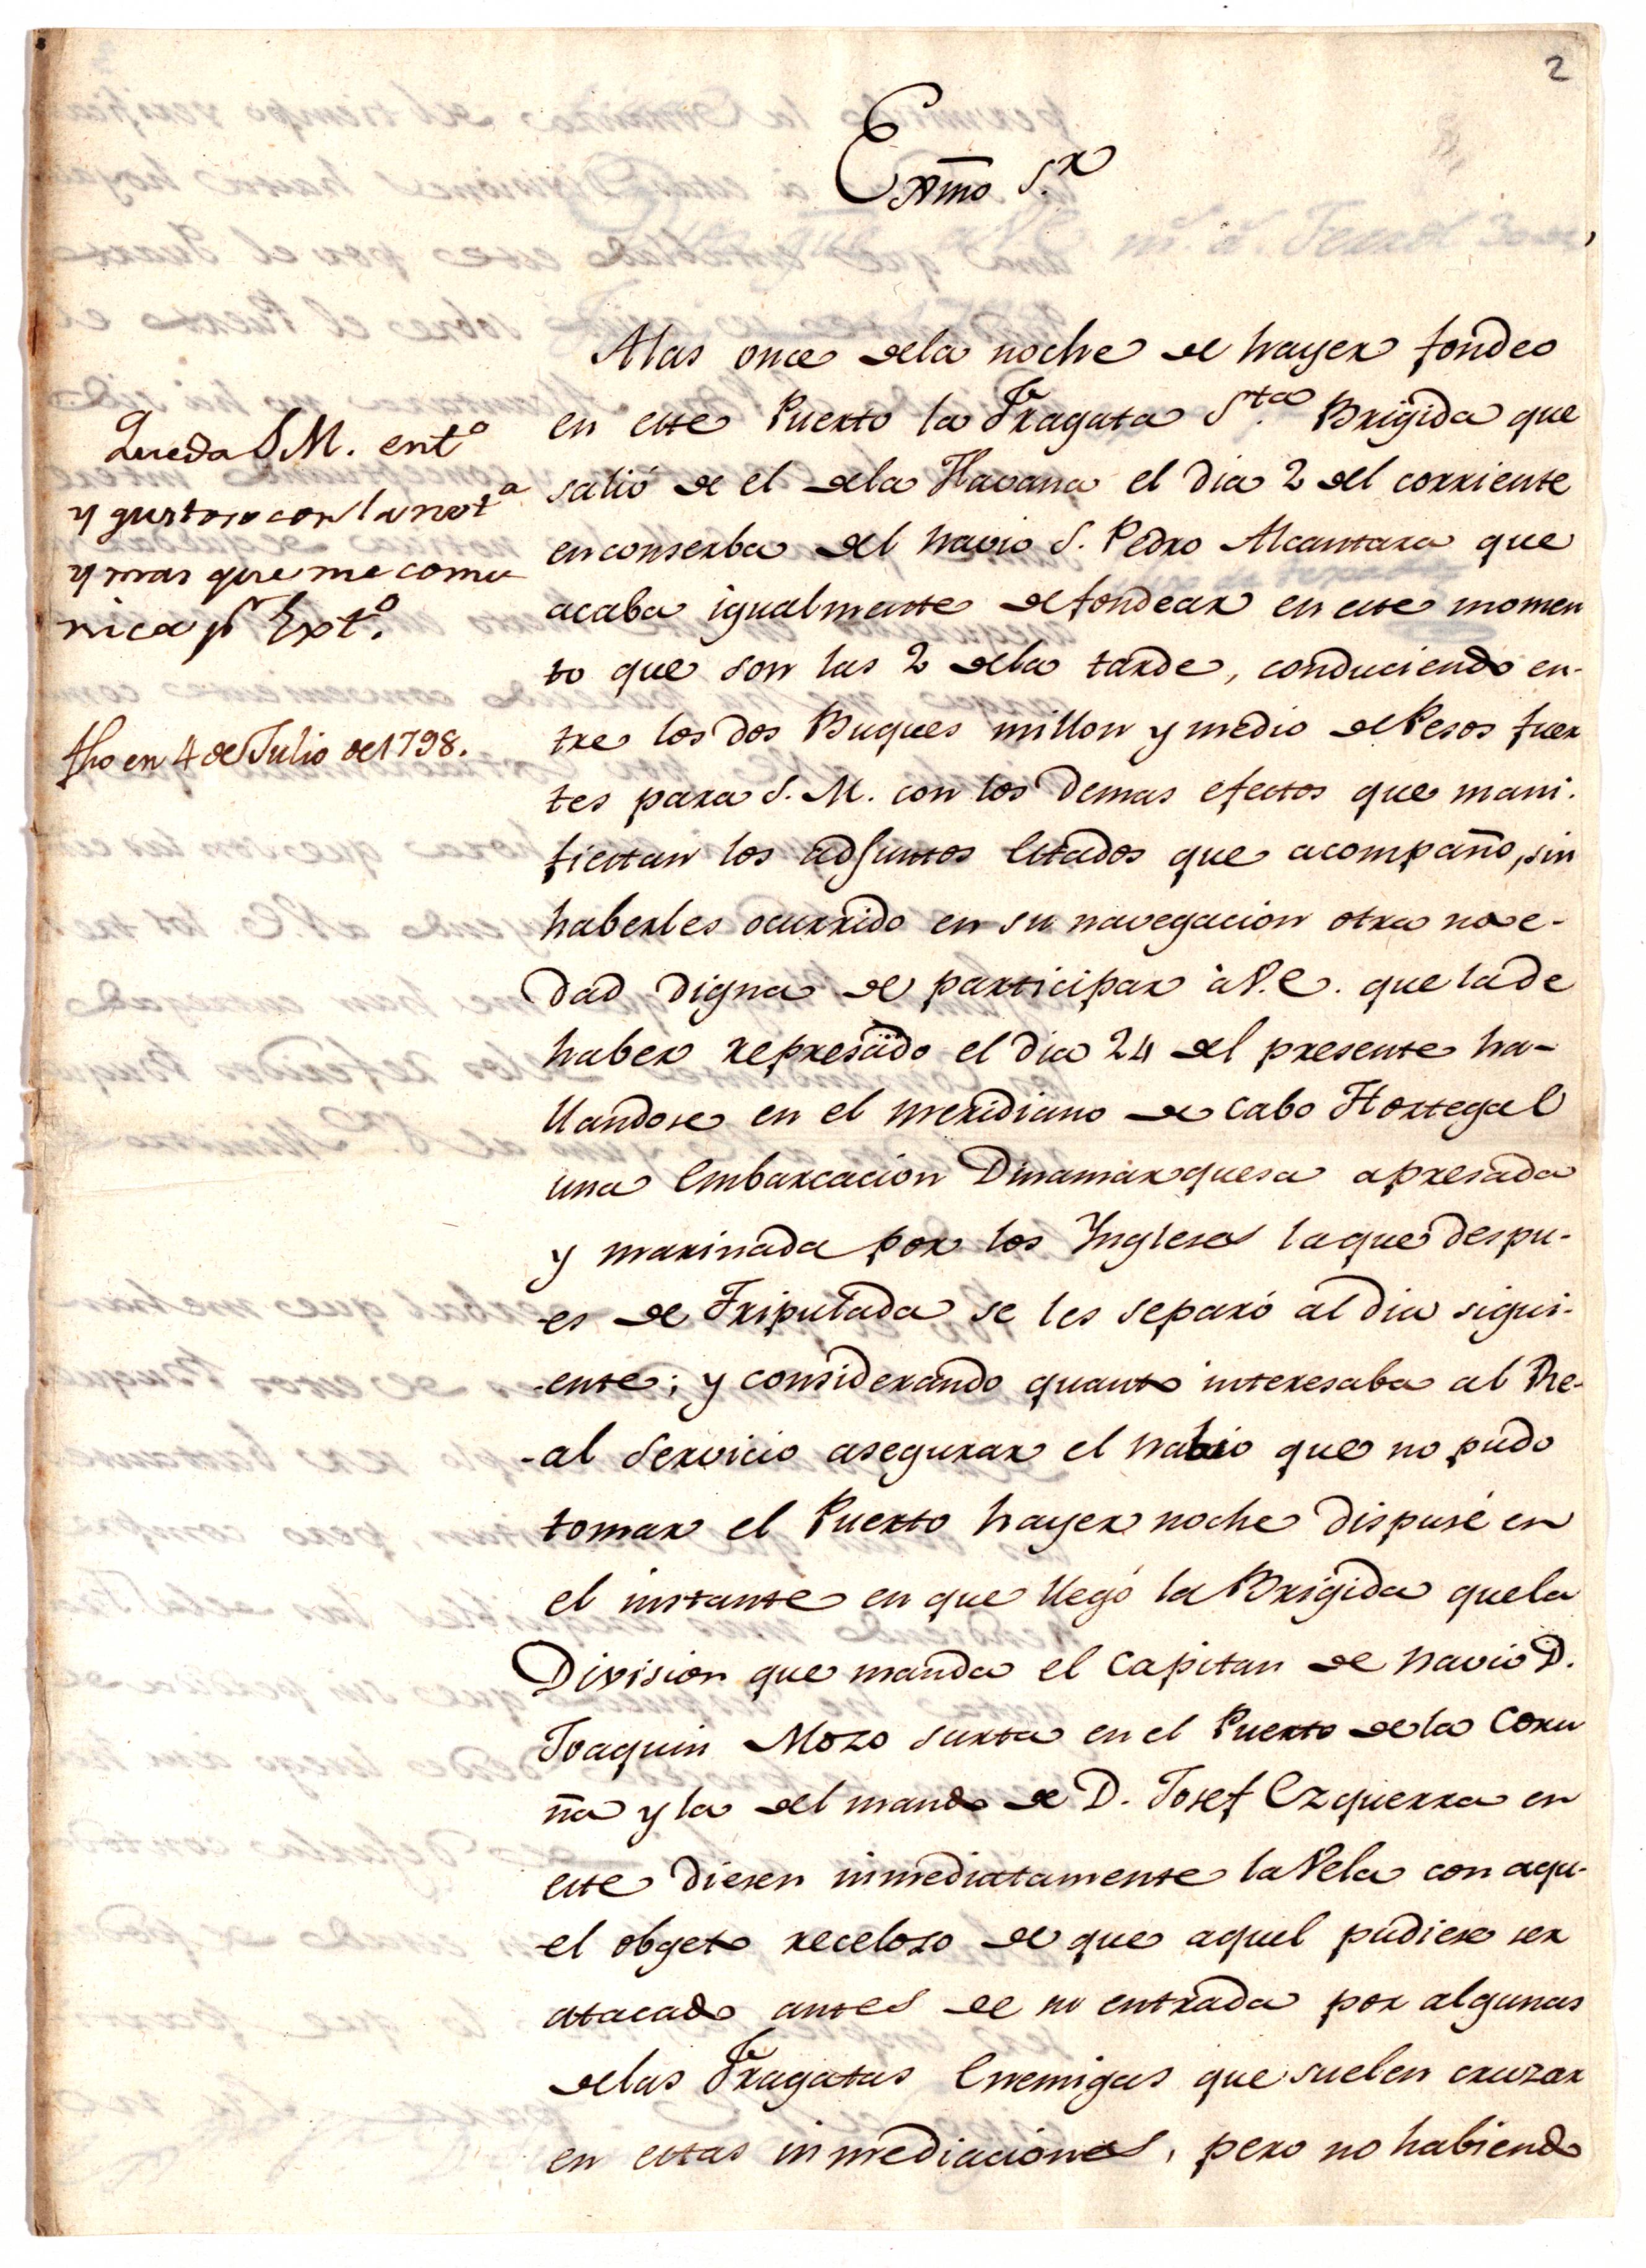 2
Exmo S.r
Alas once dela noche de hayer fondeo
en este Puerto la Fragata S.ta Brigida que
salió de el dela Havana el dia 2 del corriente
en conserba del navio S. Pedro Alcantara que
acaba igualmente de fondear en este momen
to que son las 2 dela tarde, conduciendo en-
tre los dos Buques millon y medio de Pesos fuer
tes para S. M. con los demas efectos que mani-
fiestan los adjuntos Estados que acompaño, sin
haberles ocurrido en su navegacion otra nove-
dad digna de participar à V.E. que la de
haber represado el dia 24 del presente ha-
llandose en el meridiano de Cabo Hortegal
una Embarcacion Dinamarquesa apresada
y marinada por los Yngleses la que despu-
es de Tripulada se les separó al dia sigui-
ente; y considerando quanto interesaba al Re-
al Servicio asegurar el nabio que no pudo
tomar el Puerto hayer noche dispuse en
el instante en que llegó la Brigida que la
Division que manda el Capitan de navio D.
Joaquin Mozo surta en el Puerto de la Coru
ña y la del mando de D. Josef Ezquerra en
este diesen inmediatamente la Vela con aqu-
el obgeto receloso de que aquel pudiese ser
atacado antes de su entrada por algunas
delas Fragatas Enemigas que suelen cruzar
en estas inmediaciones, pero no habiendo
Queda S M. ent.o
y gustoso con la not.a
y mas que me comu
nica p.r Ext.o
fho en 4 de Julio de 1798.